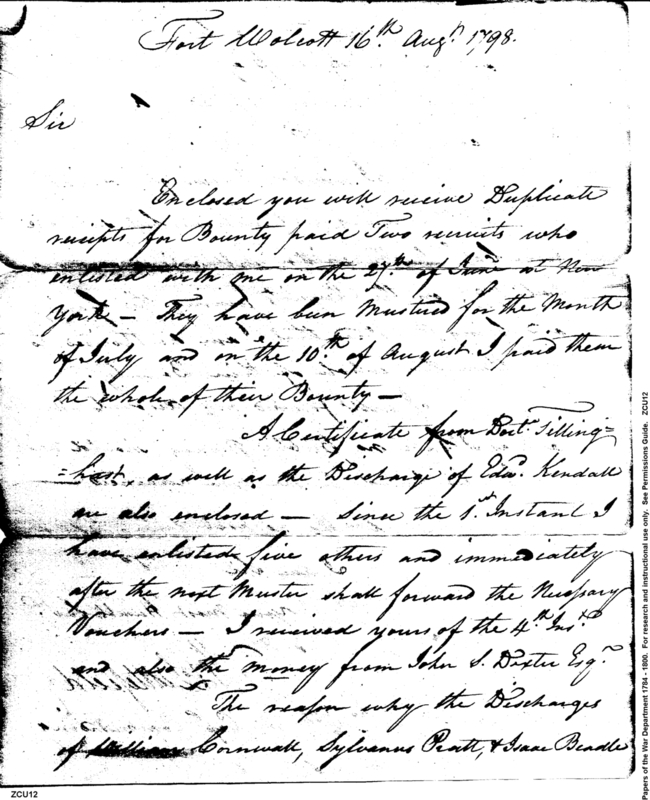 Fort Wolcott 16th. Augt. 1798.
Sir
Enclosed you will receive Duplicate
receipts for Bounty paid Two recruits who
enlisted with me on the 27th of June at New
York — They have been Mustered for the Month
of July and on the 10th. of August I paid them
the whole of their Bounty —
A Certificate from Doct. Tilling=
=hast, as well as the Discharge of Edwd. Kendall
are also enclosed — Since the 1st. Instant I
have enlisted five others and immediately
after the next Muster shall forward the Necessary
Vouchers — I received yours of the 4th. Inst.
and also the money from John S. Dexter Esqr.
The reason why the Discharges
of William Cornwall, Sylvanus Pratt, & Isaac Beadle
ZCU12
Papers of the War Department 1784 - 1800. For research and instructional use only. See Permissions Guide. ZCU12